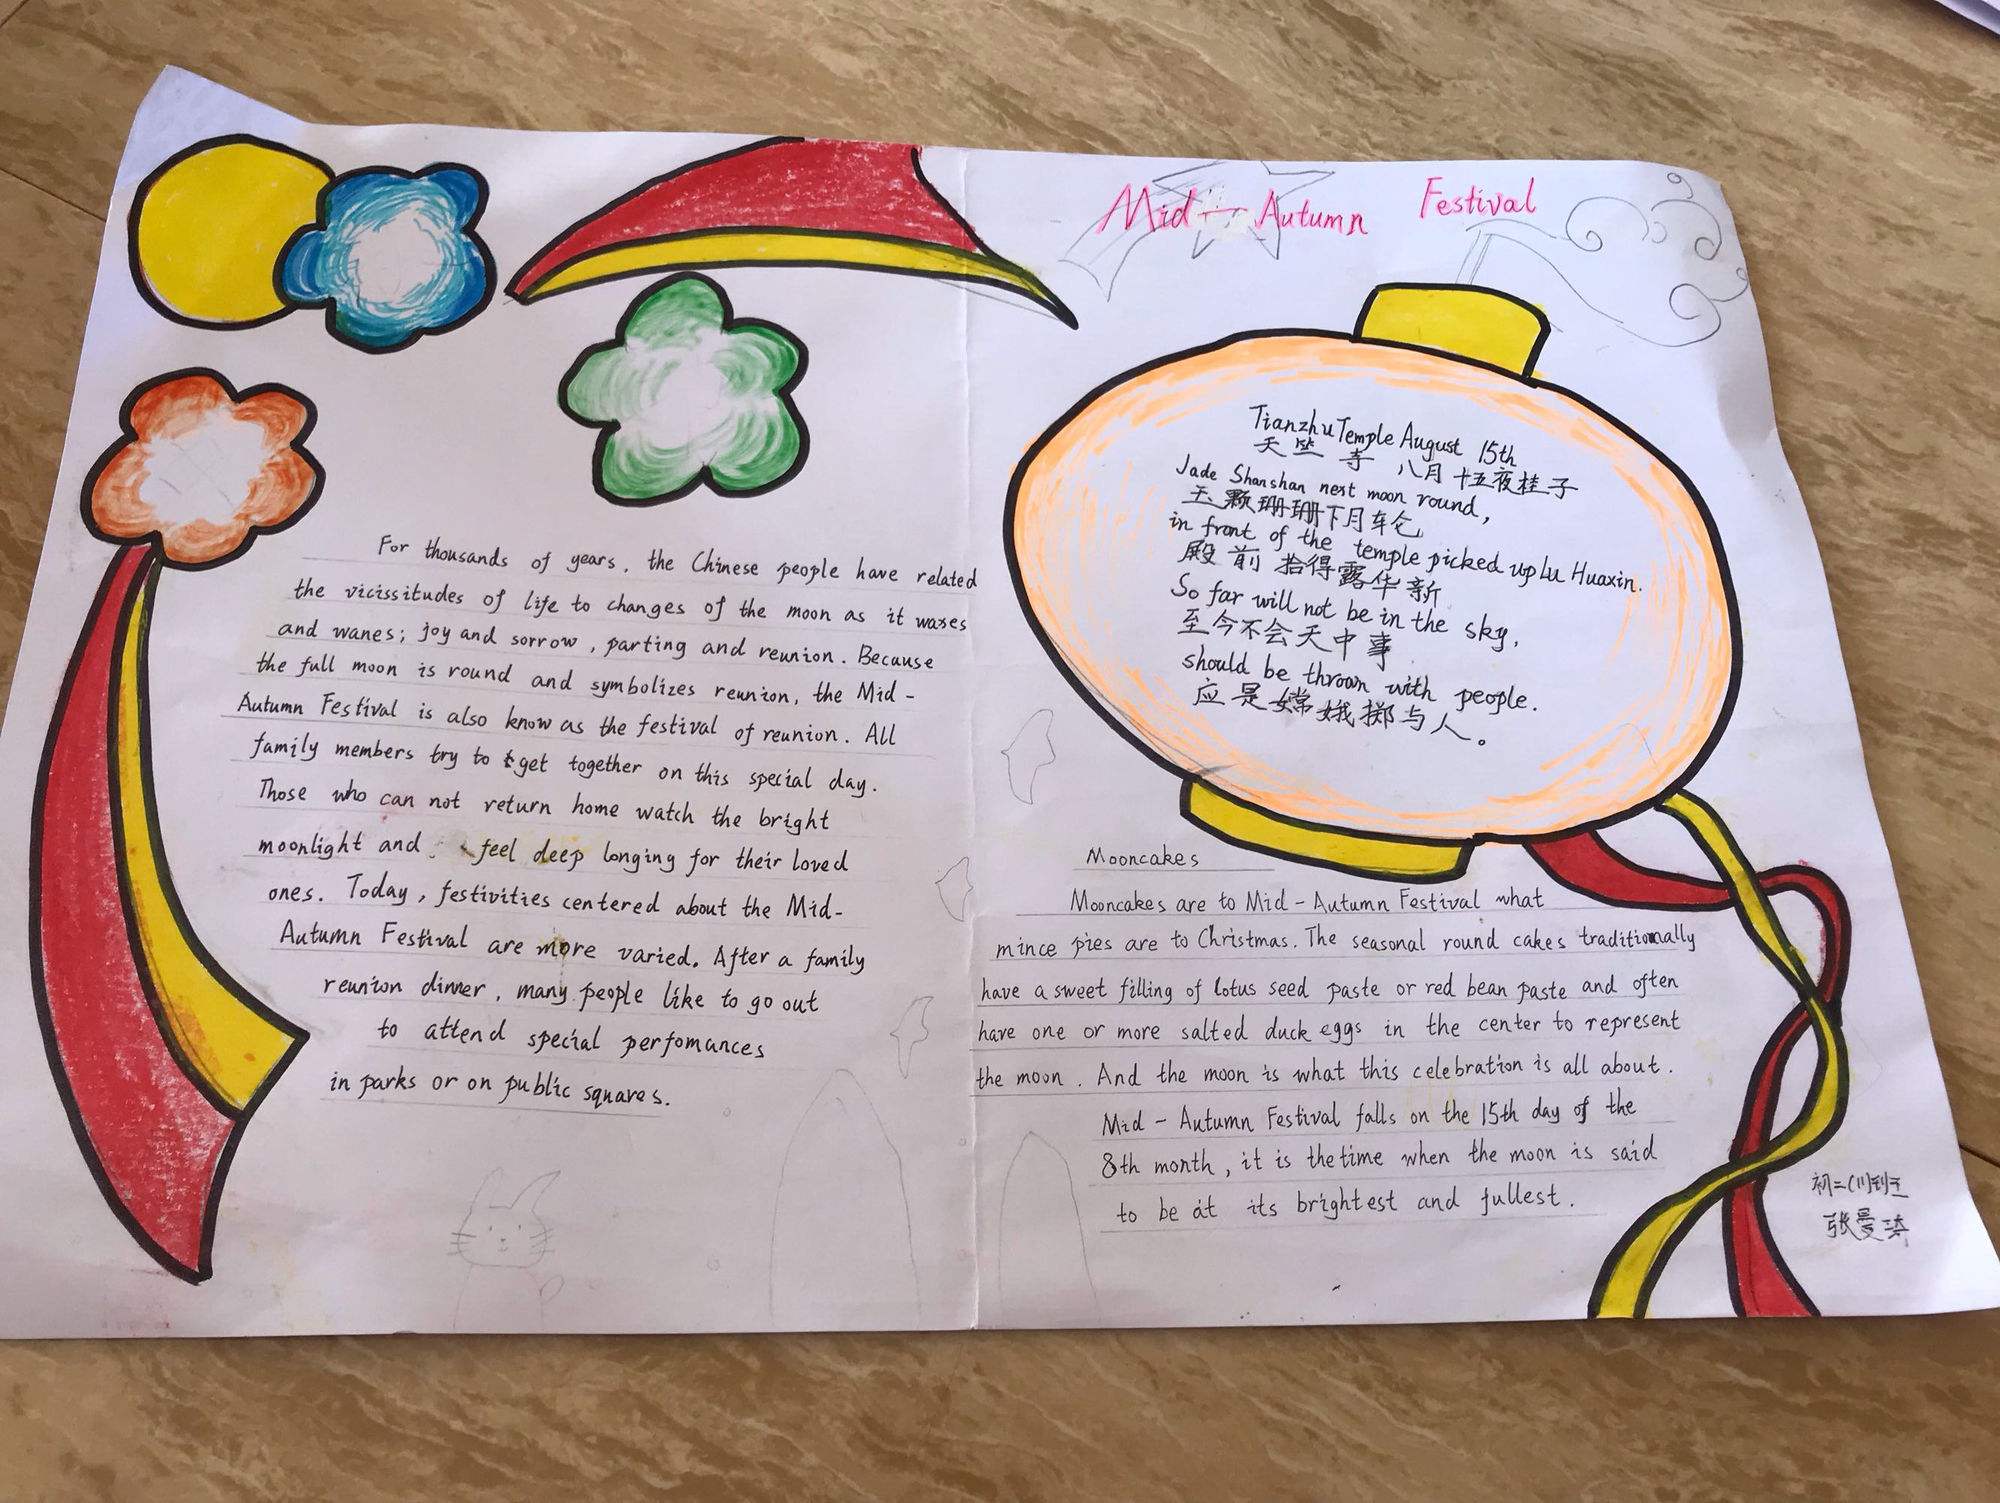 For thousands of years, the Chinese people have related
the vicissitudes of life to changes of the moon as it waxes
and wanes; joy and sorrow, parting and reunion. Because
the full moon is round and symbolizes reunion, the Mid-
Autumn Festival is also know as the festival of reunion. All
family members try to get together on this special day.
Those who can not return home watch the bright
moonlight and feel deep longing for their loved
ones. Today, festivities centered about the Mid-
Autumn Festival are more varied. After a family
reunion dinner, many people like to go out
to attend special perfomances
in parks or on public squares.
Mid-Autumn Festival
Tianzhu Temple August 15th
天竺寺八月十五夜桂子
Jade Shanshan next moon round,
玉颗珊珊下月车仑
in front of the temple picked up Lu Huaxin.
殿前拾得露华新
So far will not be in the sky,
至今不会天中事
should be thrown with people.
应是嫦娥掷与人。
Mooncakes
Mooncakes are to Mid-Autumn Festival what
mince pies are to Christmas. The seasonal round cakes traditionally
have a sweet filling of lotus seed paste or red bean paste and often
have one or more salted duck eggs in the center to represent
the moon. And the moon is what this celebration is all about.
Mid-Autumn Festival falls on the 15th day of the
8th month, it is the time when the moon is said
to be at its brightest and fullest.
初二
张曼